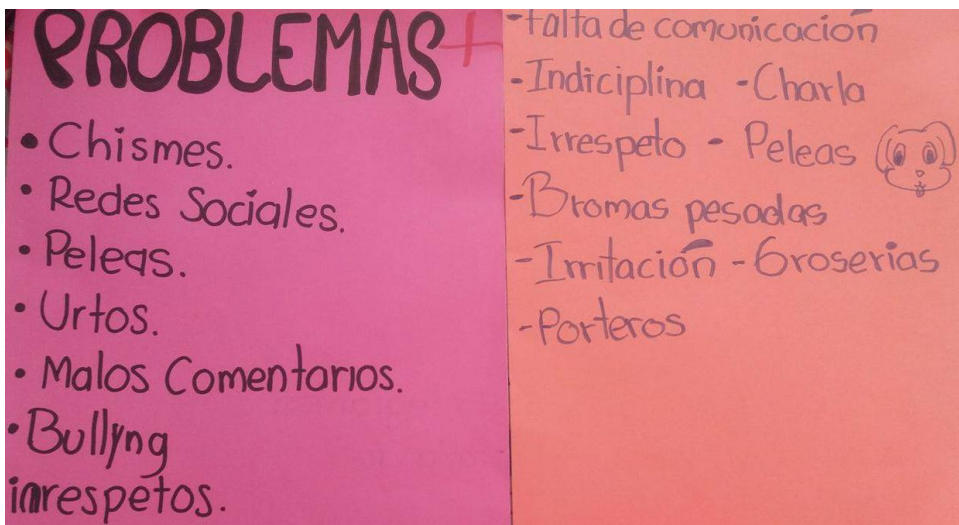 PROBLEMAS
• Chismes.
• Redes Sociales.
• Peleas.
• Urtos.
• Malos Comentarios.
• Bullyng
inrespetos.
-falta de comunicación
-Indiciplina -Charla
-Irrespeto - Peleas
-Bromas pesadas
-Irritación -Groserias
-Porteros